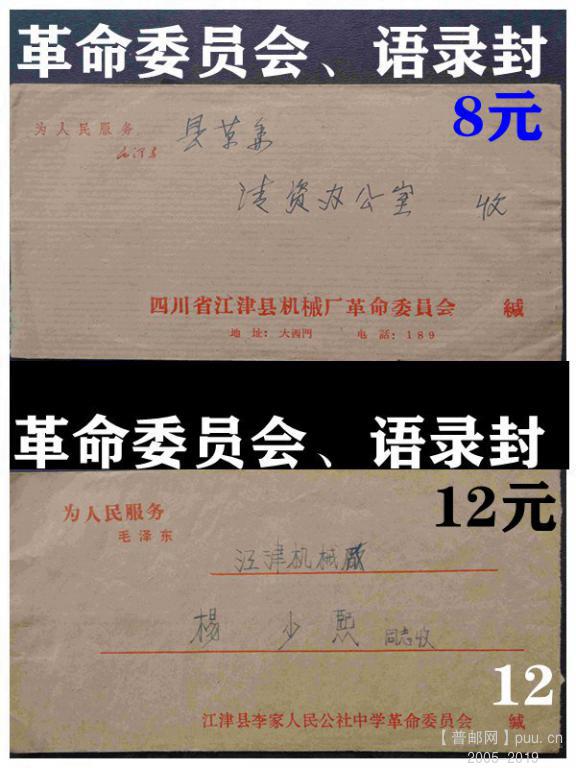 革命委员会、语录封
8元
为人民服务
毛泽东
县革委
清资办公室 收
四川省江津县机械厂革命委員会 緘
地址：大西門 电話：189
革命委员会、语录封
12元
为人民服务
毛泽东
江津机械厰
杨少熙 同志收
12
江津县李家人民公社中学革命委员会 缄
【普邮网】puu.cn
2005-2019